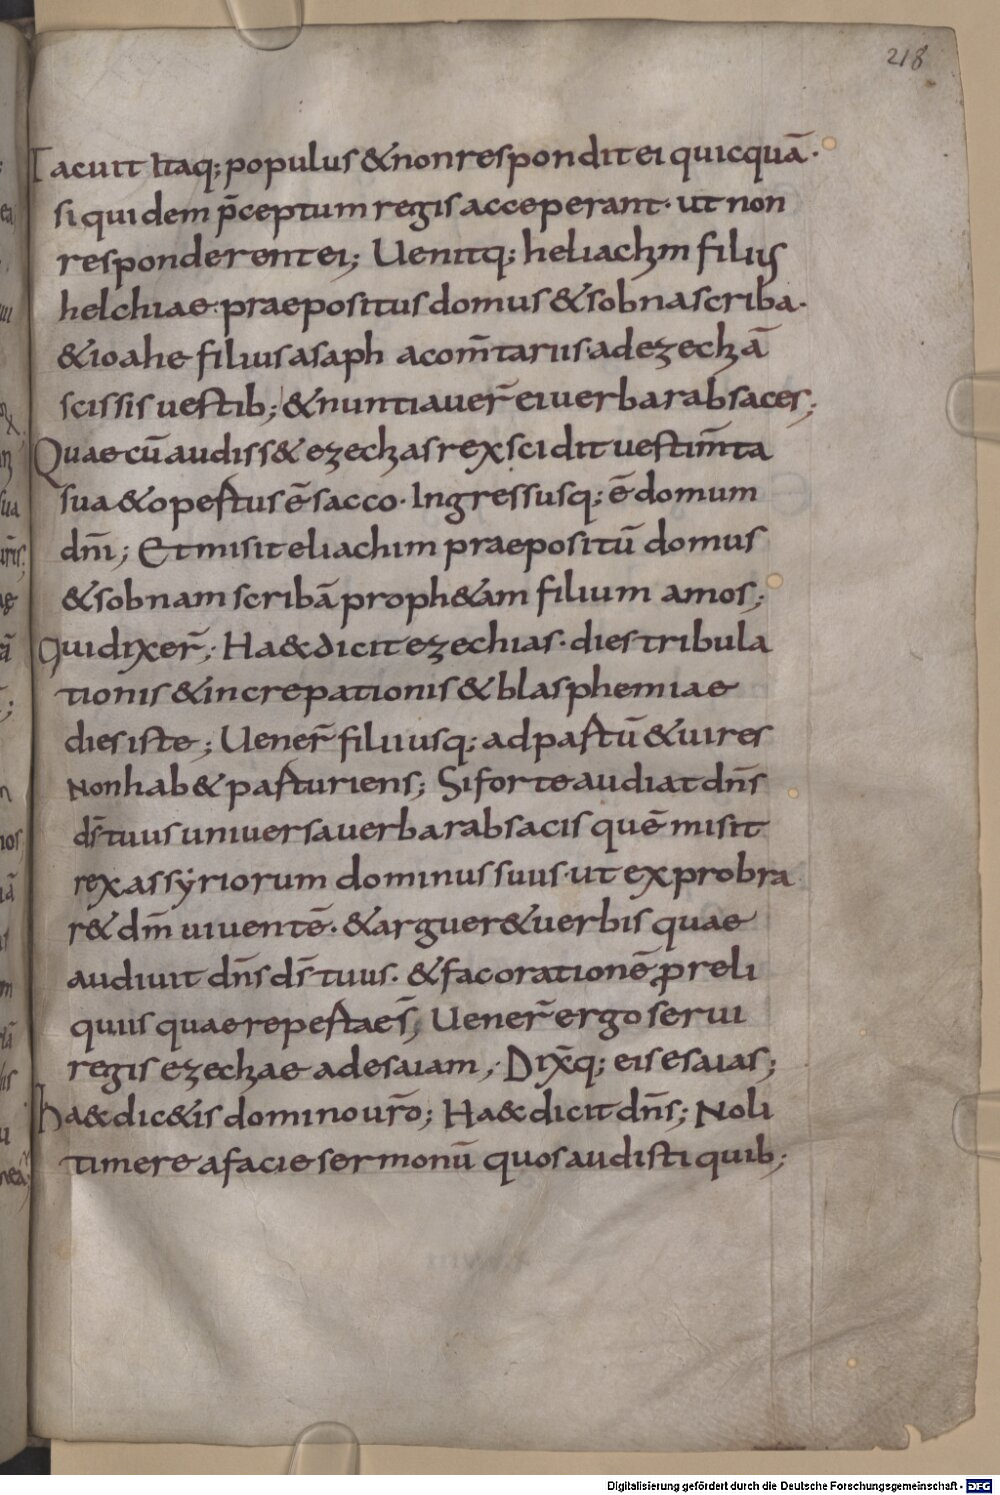 218
Tacuit itaq; populus & non respondit ei quicquā·
siquidem p̄ceptum regis acceperant· ut non
responderent ei; Uenitq; heliachim filius
helchiae· praepositus domus & sobna scriba·
& ioahe filius asaph acom̄tariis ad ezechiā
scissis uestib; & nuntiauer̄ ei uerba rabsaces;
Quae cū audiss& ezechias rex scidit uestim̄ta
sua & opertus ē sacco· Ingressusq; ē domum
dn̄i; Et misit eliachim praepositū domus
& sobnam scribā proph&am filium amos;
Qui dixer̄; Ha& dicit ezechias· dies tribula
tionis & increpationis & blasphemiae
dies iste; Uener̄ filii usq; ad partū & uires
Non hab& parturiens; Si forte audiat dn̄s
ds̄ tuus uniuersa uerba rabsacis quē misit
rex assyriorum dominus suus· ut exprobra
r& dm̄ uiuentē· & arguer& uerbis quae
audiuit dn̄s ds̄ tuus· & fac orationē p reli
quiis quae repertae s̄; Uener̄ ergo serui
regis ezechiae ad esaiam; Dix̄q; eis esaias;
ha& dic&is domino ur̄o; Ha& dicit dn̄s; Noli
timere a facie sermonū quos audisti quib;
Digitalisierung gefördert durch die Deutsche Forschungsgemeinschaft - DFG